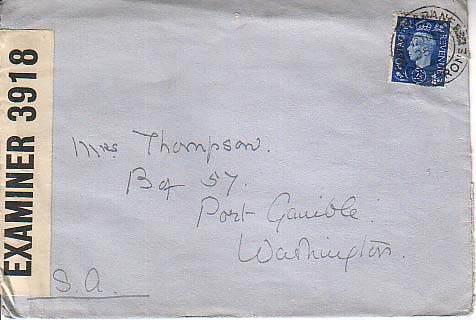 EXAMINER 3918
POSTAGE REVENUE
2½d
Mrs Thompson.
Box 57.
Port Gamble.
Washington.
S.A.